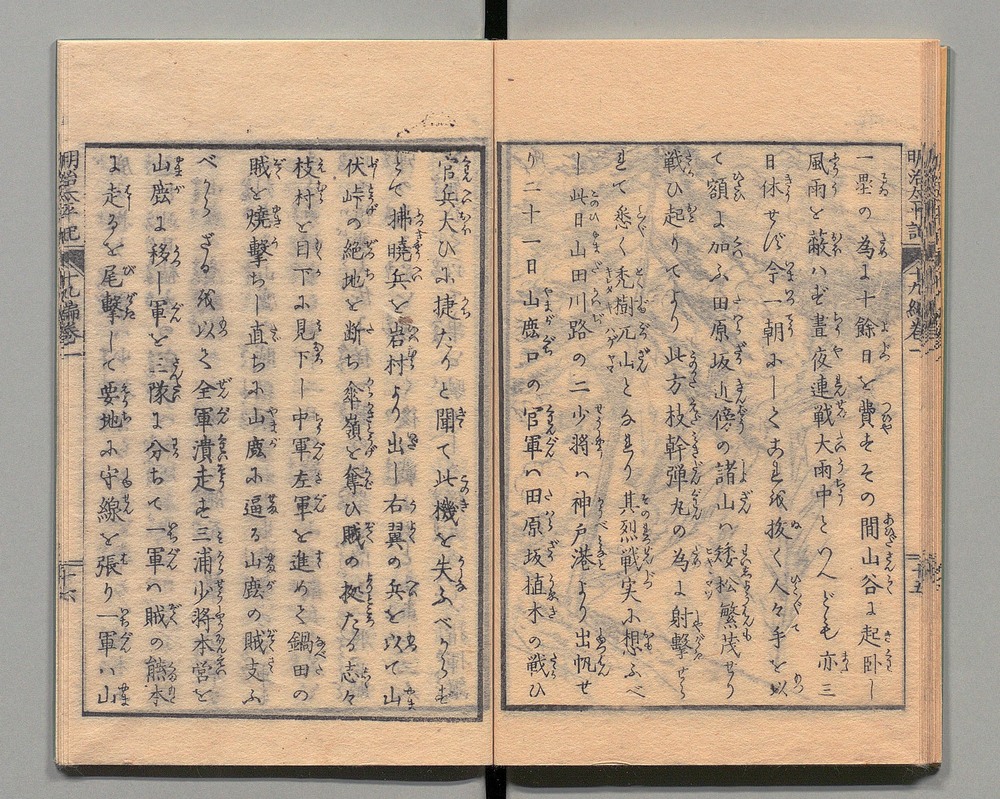 明治太平記 十九編巻一
一塁の為に十餘日を費せその間山谷に起卧し
風雨を蔽ハず晝夜連戦大雨中といへども亦三
日休せず今一朝にしてこれを抜く人々手を以
て額に加ふ田原坂近傍の諸山ハ矮松繁茂せり
戦ひ起りてより此方枝幹弾丸の為に射撃せら
れて悉く禿樹兀山となれり其烈戦実に想ふべ
し此日山田川路の二少将ハ神戸港より出帆せ
り二十一日山鹿口の官軍ハ田原坂植木の戦ひ
官兵大ひに捷たりと聞て此機を失ふべからず
とて拂曉兵を岩村より出し右翼の兵を以て山
伏峠の絶地を断ち傘嶺を奪ひ賊の拠たる志々
枝村を目下に見下し中軍左軍を進めて鍋田の
賊を焼撃ちし直ちに山鹿に逼る山鹿の賊支ふ
べからざるを以て全軍潰走す三浦少将本営を
山鹿に移し軍を三隊に分ちて一軍ハ賊の熊本
に走るを尾撃して要地に守線を張り一軍ハ山
明治太平記 十九編巻一 十六